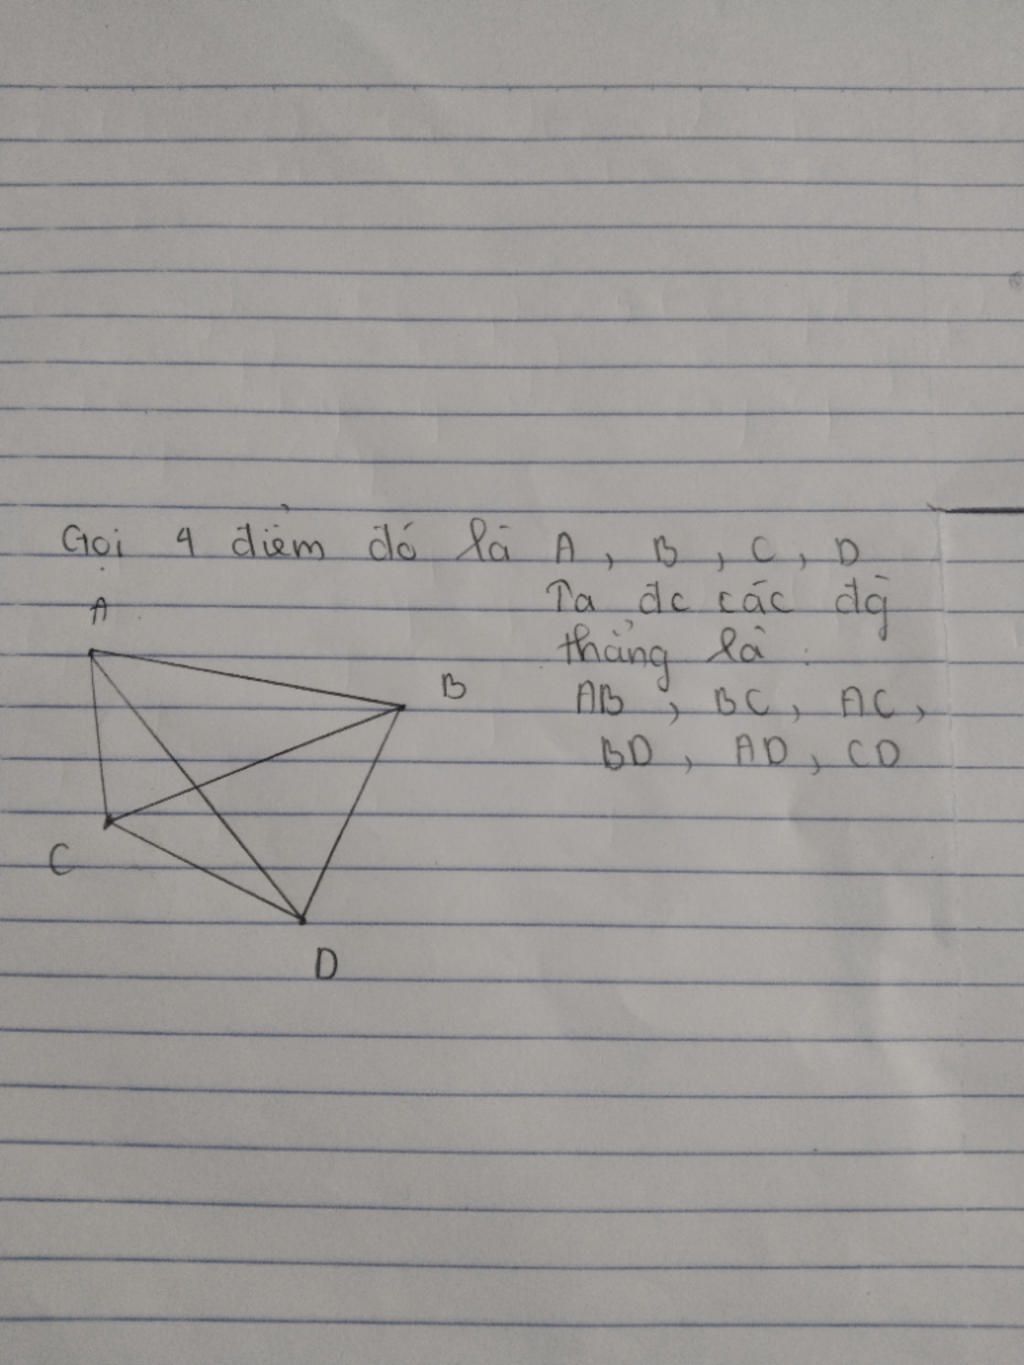 Gọi 4 điểm đó là A, B, C, D
Ta đc các đg̀
thẳng là:
AB, BC, AC,
BD, AD, CD
A
B
C
D